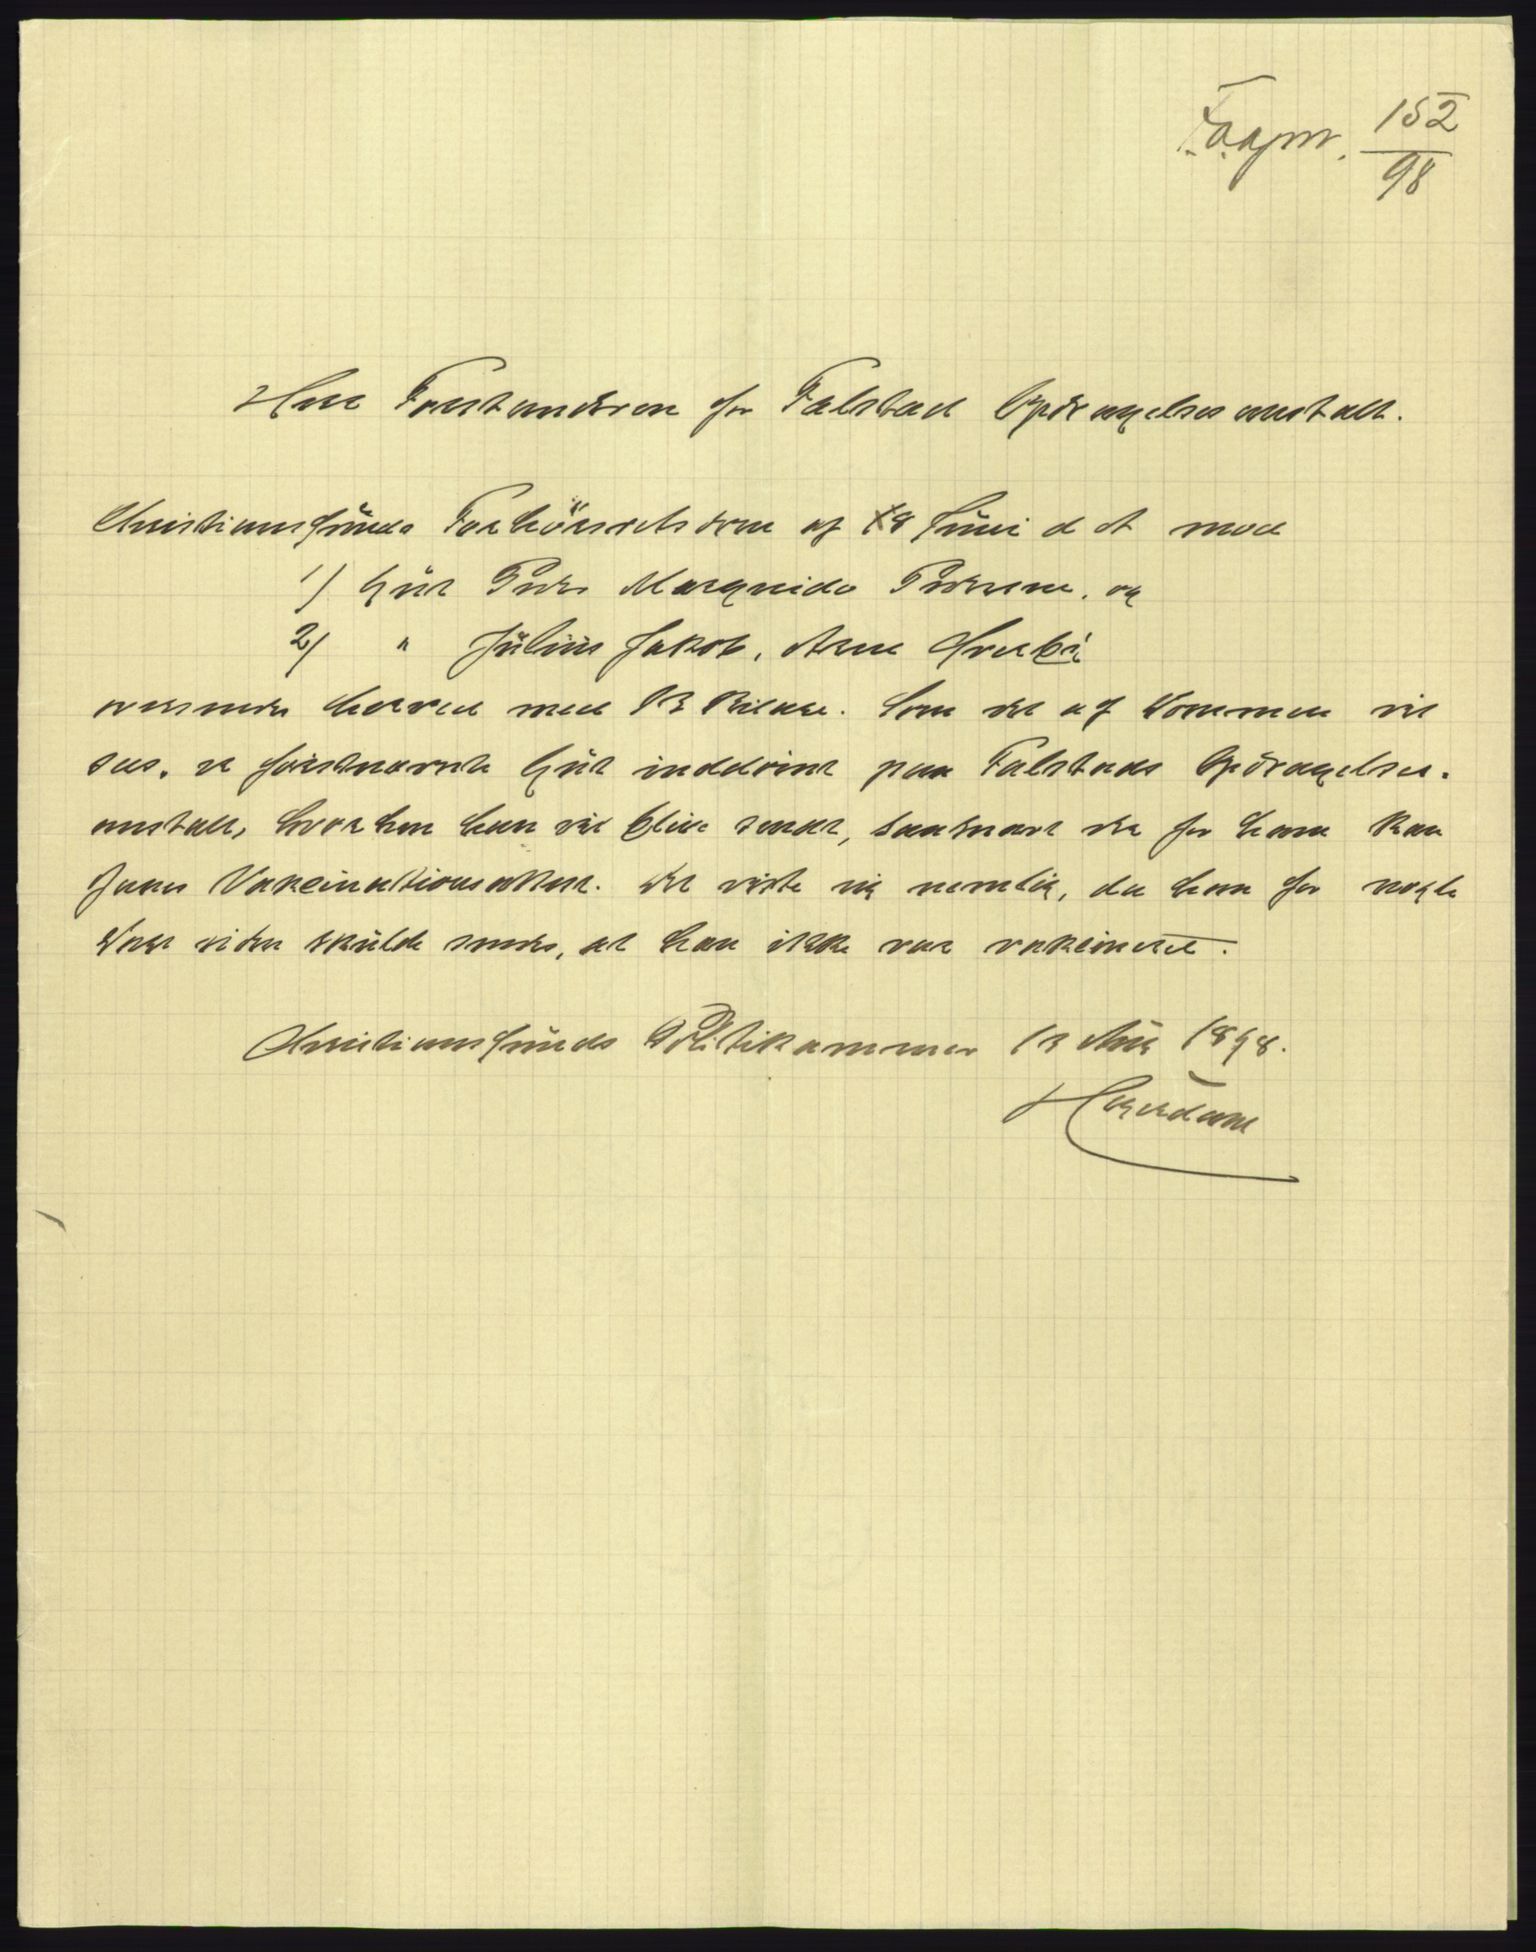 F.a.gjnr. 152/98
Herr Forstanderen for Falstad Opdragelsesanstalt.
Christianssunds Forhörsretsdom af 18 Juni d A mod
1) Gut Peder Margnido Pedersen, og
2) " Julius Jakob. Arne
oversendes herved med 13 Bilage. Som det af Dommen vil
sees. er förstnævnte Gut inddömt paa Falstads Opdragelses-
anstalt, hvorhen han vil blive sendt, saasnart der for ham kan
faaes Vakcinationsattest. Det viste sig nemlig, da han for nogle
Dage siden skulde sendes, at han ikke var vakcineret.
Christianssunds Politikammer 13 Aug 1898.